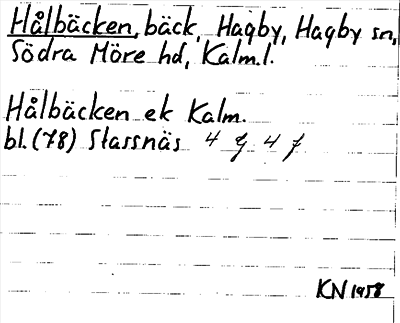 Hålbäcken, bäck, Hagby, Hagby sn,
Södra Möre hd, Kalm.l.
Hålbäcken ek Kalm.
bl. (78) Stassnäs 4 g 4 f
KN 1958